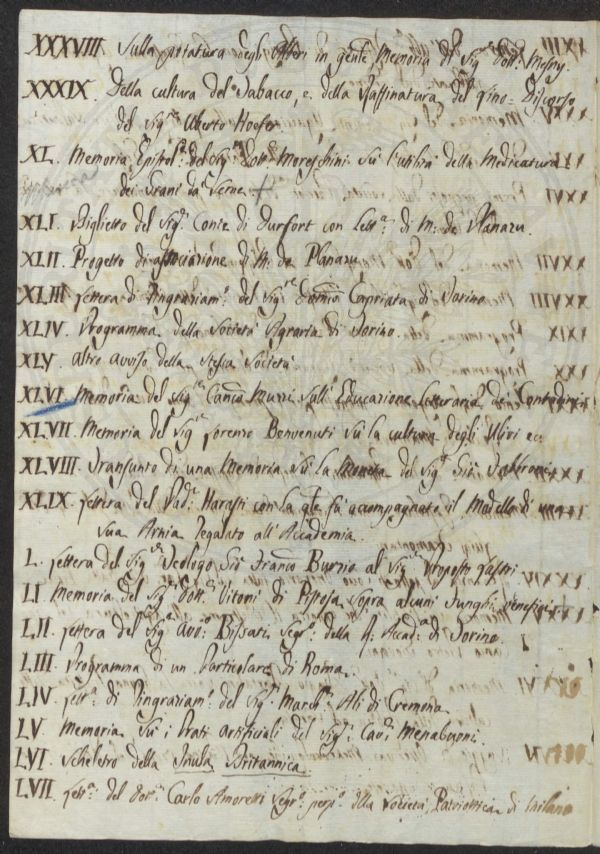 XXXVIII Sulla potatura degli Alberi in gen.le Memoria del Sig.r Dott. Mesny.
XXXIX. Della cultura del Tabacco, e della Raffinatura del Lino. Discorso
del Sig.r Uberto Hoefer
XL. Memoria Epistol.a del Sig.r Dott. Moreschini su l'utilità della Medicatura
dei Grani da Seme +
XLI. Biglietto del Sig.r Conte di Durfort con Lett.a di M. de Planazu.
XLII. Progetto di associazione di M. de Planazu
XLIII Lettera di Ringraziam.o del Sig.re Capriata di Torino
XLIV. Programma della Società Agraria di Torino.
XLV. Altro avviso della stessa Società
XLVI. Memoria del Sig.r Can.co Muzzi sull' Educazione Letteraria dei Contadini
XLVII. Memoria del Sig.r Lorenzo Benvenuti su la cultura degli Ulivi ec.
XLVIII. Transunto di una Memoria su la Moneta del Sig.r Gio. Fabbroni
XLIX. Lettera del Pad.e Harasti con la q.le fù accompagnato il Modello di una
sua Arnia regalato all' Accademia.
L. Lettera del Sig.r Teologo Gio. Franc.o Burzio al Sig.r Proposto Lastri
LI. Memoria del Sig.r Dott. Vitoni di Pistoja sopra alcuni Funghi venefici +
LII. Lettera del Sig.r Avv.o Bissati Segr.o della R. Accad.a di Torino.
LIII. Programma di un Particolare di Roma.
LIV. Lett.a di Ringraziam.o del Sig.r March.e Ali di Cremona
LV. Memoria su i Prati artificiali del Sig.r Cav.r Menabuoni.
LVI. Scheletro della Inula Britannica
LVII. Lett.a del Carlo Amoretti Segr.o perp.o della Società Patriottica di Milano